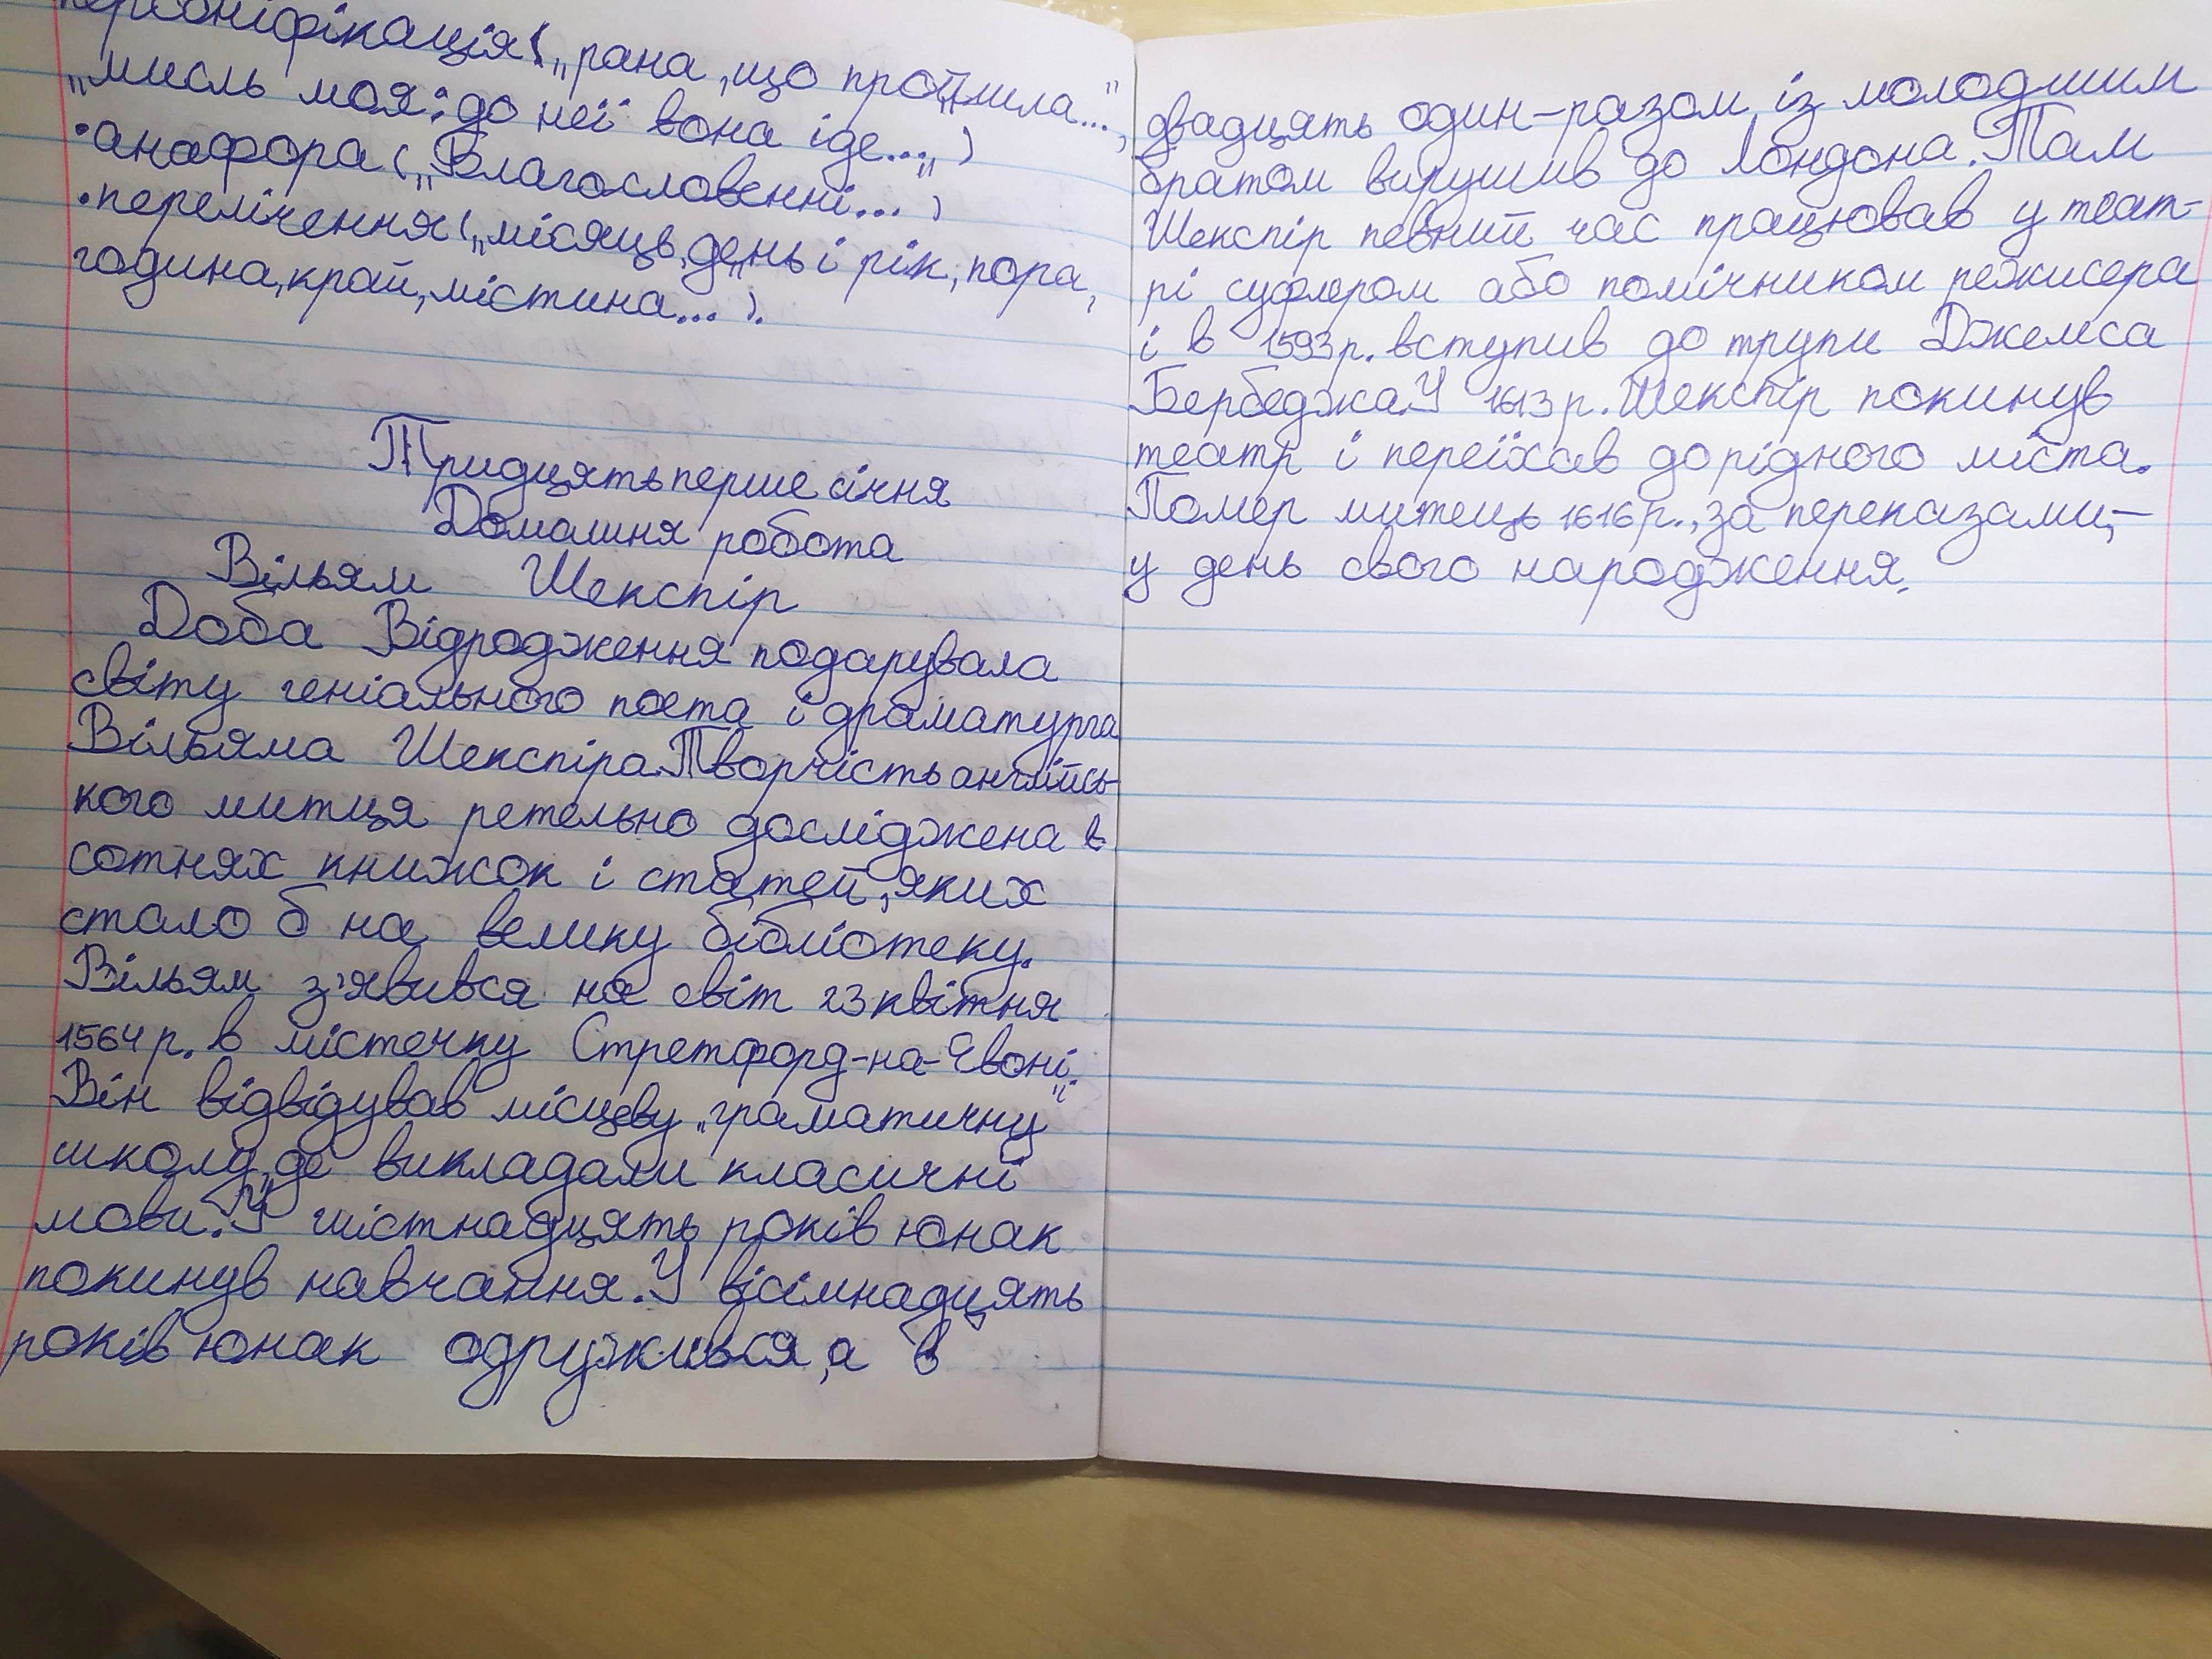 персоніфікація („рана, що пройшла...",
„мисль моя: до неї вона іде...„)
•анафора („Благословенні...)
•перелічення („місяць, день і рік, пора,
година, край, містина...).
Тридцять перше січня
Домашня робота
Вільям Шекспір
Доба Відродження подарувала
світу геніального поета і драматурга
Вільяма Шекспіра. Творчість англійсь-
кого митця ретельно досліджена в
сотнях книжок і статей, яких
стало б на велику бібліотеку.
Вільям з'явився на світ 23 квітня
1564 р. в містечку Стретфорд-на-Евоні.
Він відвідував місцеву „граматичну"
школу, де викладали класичні
мови. У шістнадцять років юнак
покинув навчання. У вісімнадцять
років юнак одружився, а в
двадцять один-разом із молодшим
братом вирушив до Лондона. Там
Шекспір певний час працював у теат-
рі суфлером або помічником режисера
і в 1593 р. вступив до трупи Джемса
Бербеджа. У 1613 р. Шекспір покинув
театр і переїхав до рідного міста.
Помер митець 1616 р., за переказами,-
у день свого народження.